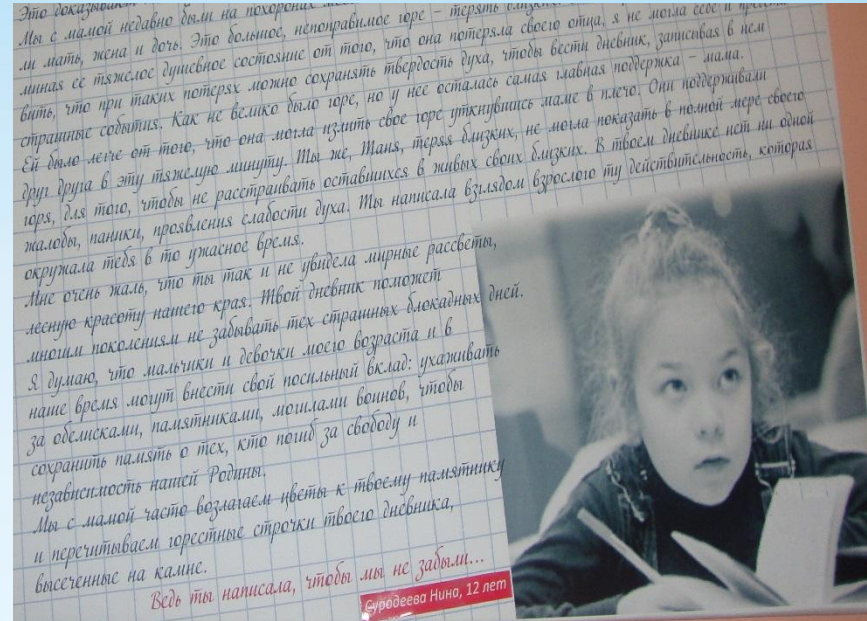 Это доказывают
Мы с мамой недавно были на похоронах
ли мать, жена и дочь. Это большое, непоправимое горе – терять
миная ее тяжелое душевное состояние от того, что она потеряла своего отца, я не могла себе и
вить, что при таких потерях можно сохранять твердость духа, чтобы вести дневник, записывая в нем
страшные события. Как не велико было горе, но у нее осталась самая главная поддержка – мама.
Ей было легче от того, что она могла излить свое горе уткнувшись маме в плечо. Они поддерживали
друг друга в эту тяжелую минуту. Ты же, Таня, теряя близких, не могла показать в полной мере своего
горя, для того, чтобы не расстраивать оставшихся в живых своих близких. В твоем дневнике нет ни одной
жалобы, паники, проявления слабости духа. Ты написала взглядом взрослого ту действительность, которая
окружала тебя в то ужасное время.
Мне очень жаль, что ты так и не увидела мирные рассветы,
лесную красоту нашего края. Твой дневник поможет
многим поколениям не забывать тех страшных блокадных дней.
Я думаю, что мальчики и девочки моего возраста и в
наше время могут внести свой посильный вклад: ухаживать
за обелисками, памятниками, могилами воинов, чтобы
сохранить память о тех, кто погиб за свободу и
независимость нашей Родины.
Мы с мамой часто возлагаем цветы к твоему памятнику
и перечитываем горестные строчки твоего дневника,
высеченные на камне.
Ведь ты написала, чтобы мы не забыли...
Суродеева Нина, 12 лет